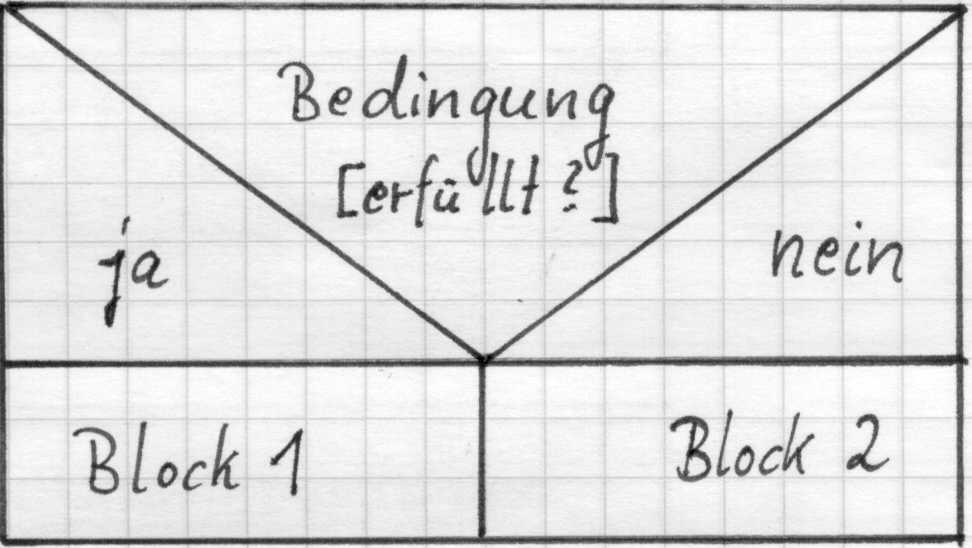 Bedingung
[erfüllt ?]
ja
nein
Block 1
Block 2